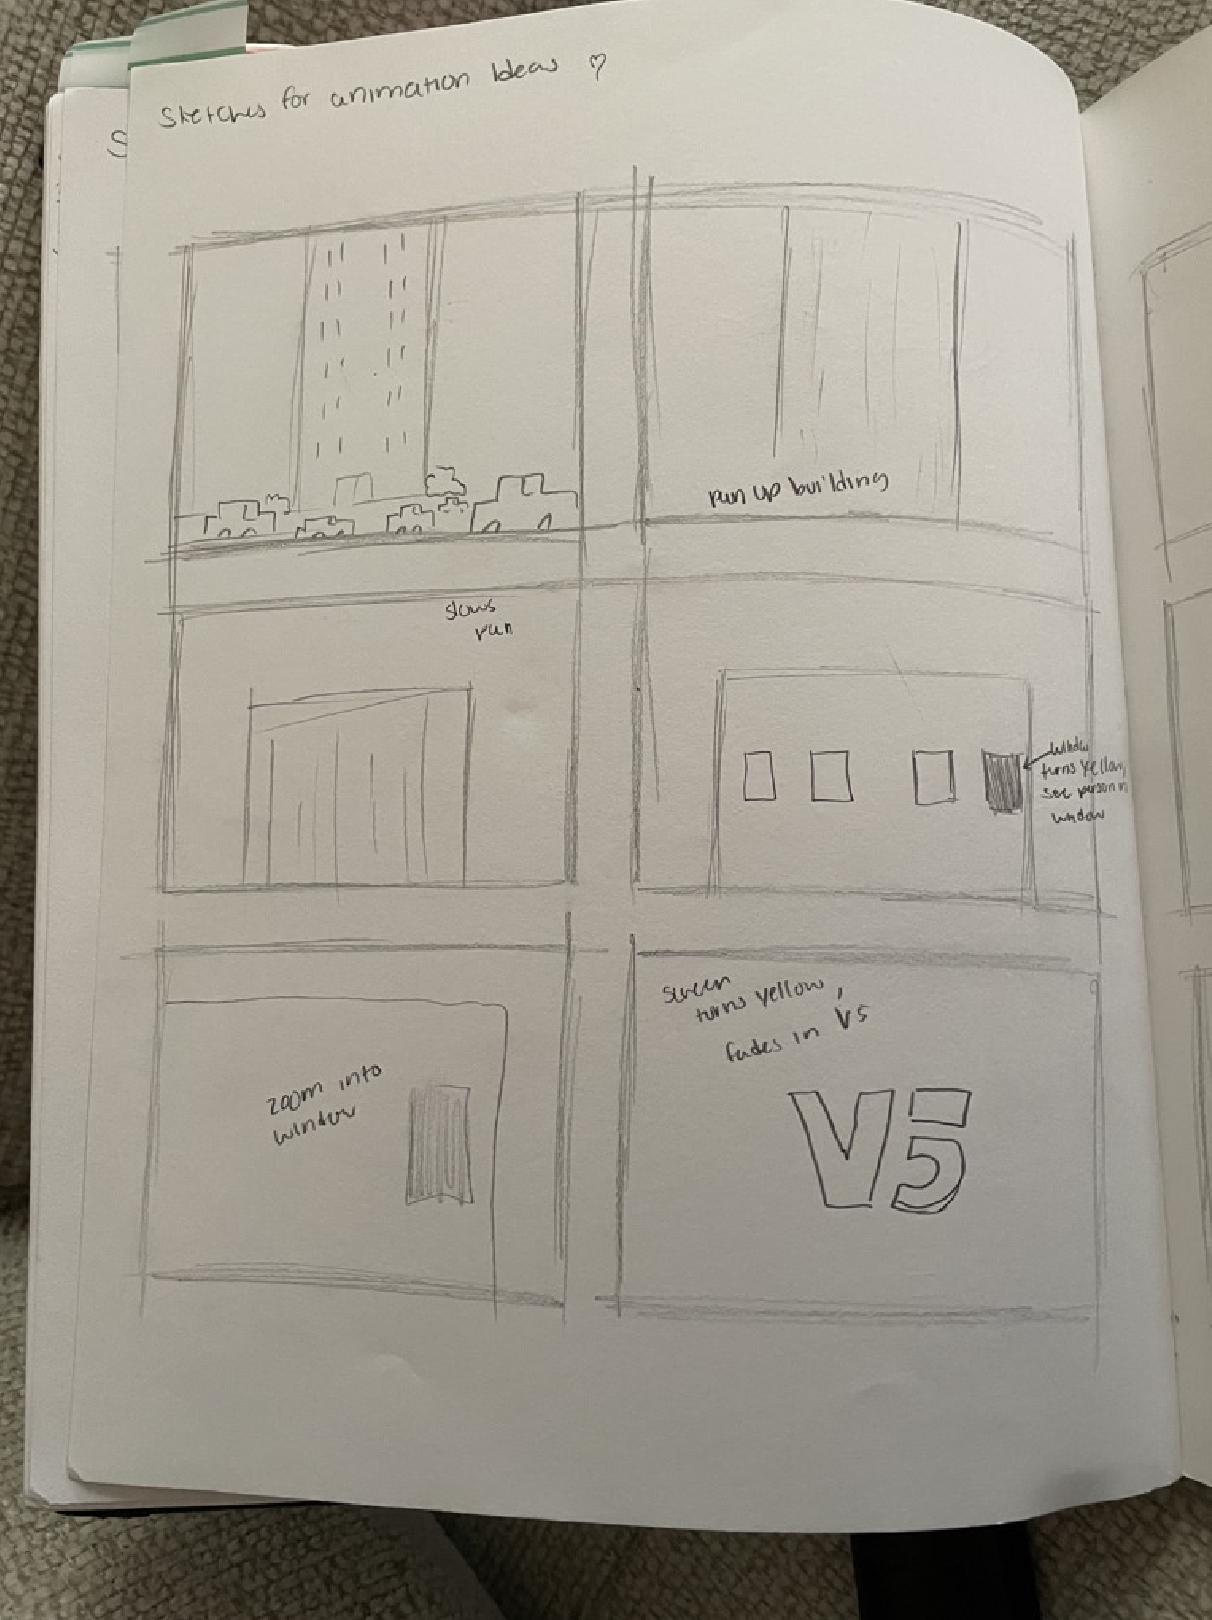 Sketches for animation Ideas ♡
S
run up building
slows
run
window
turns yellow,
see person in
window
zoom into
window
screen
turns yellow,
fades in V5
V5